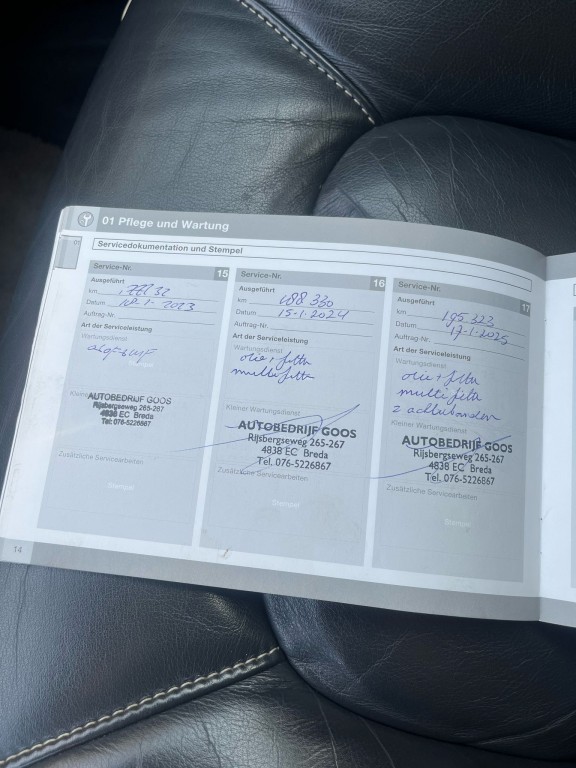 01 Pflege und Wartung
01
Servicedokumentation und Stempel
Service-Nr. 15
Ausgeführt
km
Datum 10-1-2023
Auftrag-Nr.
Art der Serviceleistung
Wartungsdienst
Kleiner
AUTOBEDRIJF GOOS
Rijsbergseweg 265-267
4838 EC Breda
Tel. 076-5226867
Zusätzliche Servicearbeiten
Stempel
Service-Nr. 16
Ausgeführt
km 188 330
Datum 15-1-2024
Auftrag-Nr.
Art der Serviceleistung
Wartungsdienst
olie + filter
multi filter
Kleiner Wartungsdienst
AUTOBEDRIJF GOOS
Rijsbergseweg 265-267
4838 EC Breda
Tel. 076-5226867
Zusätzliche Servicearbeiten
Stempel
Service-Nr. 17
Ausgeführt
km 195 323
Datum 17-1-2025
Auftrag-Nr.
Art der Serviceleistung
Wartungsdienst
olie + filter
multi filter
2 achterbanden
Kleiner Wartungsdienst
AUTOBEDRIJF GOOS
Rijsbergseweg 265-267
4838 EC Breda
Tel. 076-5226867
Zusätzliche Servicearbeiten
Stempel
14